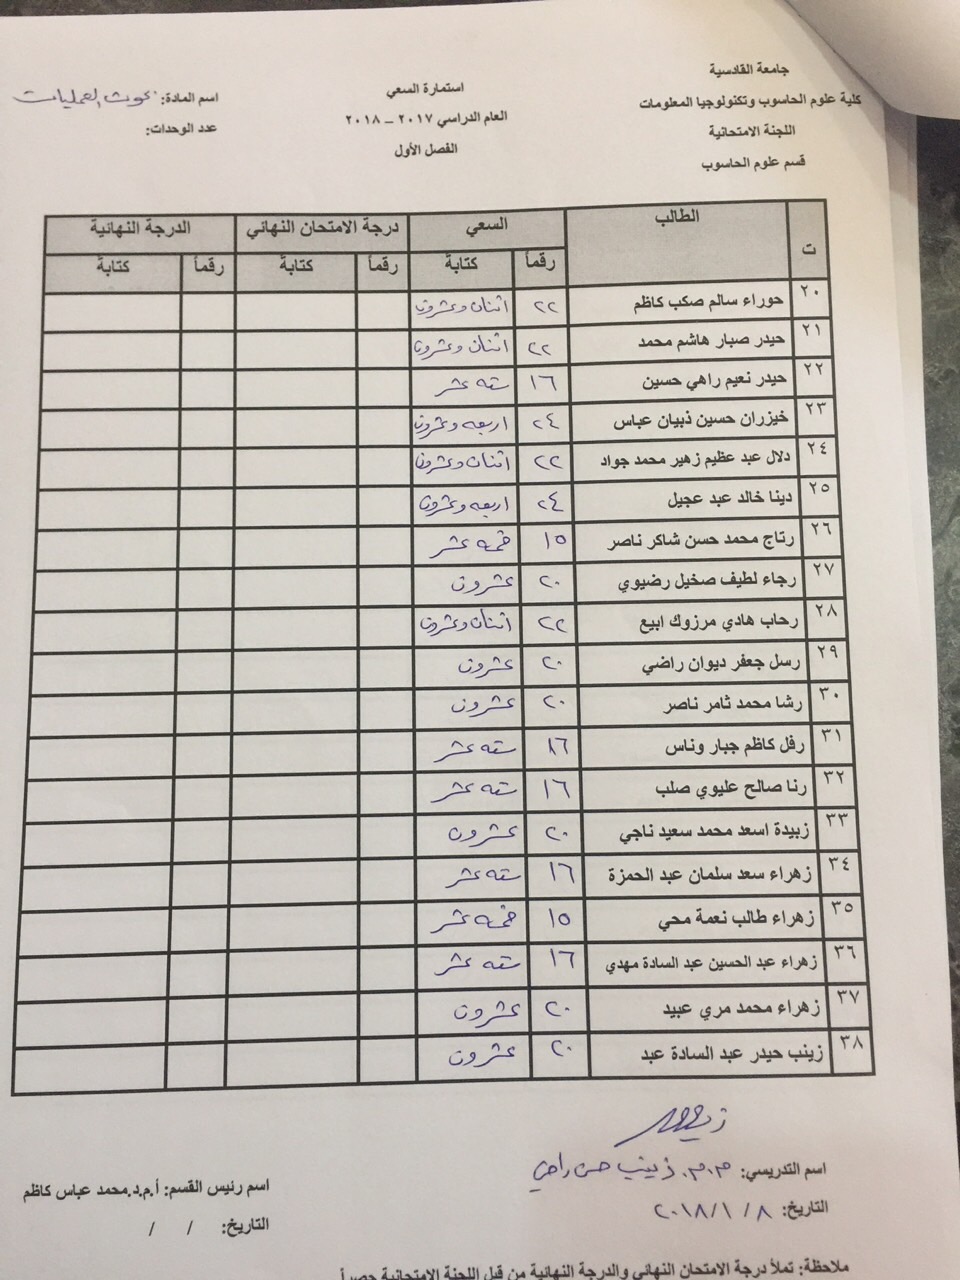 جامعة القادسية
كلية علوم الحاسوب وتكنولوجيا المعلومات
اللجنة الامتحانية
قسم علوم الحاسوب
استمارة السعي
العام الدراسي ٢٠١٧ – ٢٠١٨
الفصل الأول
اسم المادة: بحوث العمليات
عدد الوحدات:
ت الطالب السعي درجة الامتحان النهائي الدرجة النهائية
رقماً كتابةً رقماً كتابةً رقماً كتابةً
٢٠ حوراء سالم صكب كاظم ٢٢ اثنان وعشرون
٢١ حيدر صبار هاشم محمد ٢٢ اثنان وعشرون
٢٢ حيدر نعيم راهي حسين ١٦ ستة عشر
٢٣ خيزران حسين ذبيان عباس ٢٤ اربعه وعشرون
٢٤ دلال عبد عظيم زهير محمد جواد ٢٢ اثنان وعشرون
٢٥ دينا خالد عبد عجيل ٢٤ اربعه وعشرون
٢٦ رتاج محمد حسن شاكر ناصر ١٥ خمسه عشر
٢٧ رجاء لطيف صخيل رضيوي ٢٠ عشرون
٢٨ رحاب هادي مرزوك ابيع ٢٢ اثنان وعشرون
٢٩ رسل جعفر ديوان راضي ٢٠ عشرون
٣٠ رشا محمد ثامر ناصر ٢٠ عشرون
٣١ رفل كاظم جبار وناس ١٦ سته عشر
٣٢ رنا صالح عليوي صلب ١٦ سته عشر
٣٣ زبيدة اسعد محمد سعيد ناجي ٢٠ عشرون
٣٤ زهراء سعد سلمان عبد الحمزة ١٦ سته عشر
٣٥ زهراء طالب نعمة محي ١٥ خمسه عشر
٣٦ زهراء عبد الحسين عبد السادة مهدي ١٦ سته عشر
٣٧ زهراء محمد مري عبيد ٢٠ عشرون
٣٨ زينب حيدر عبد السادة عبد ٢٠ عشرون
اسم التدريسي: م.م. زينب حسن راضي
التاريخ: ٨ / ١ / ٢٠١٨
اسم رئيس القسم: أ.م.د.محمد عباس كاظم
التاريخ: / /
ملاحظة: تملأ درجة الامتحان النهائي والدرجة النهائية من قبل اللجنة الامتحانية حصراً